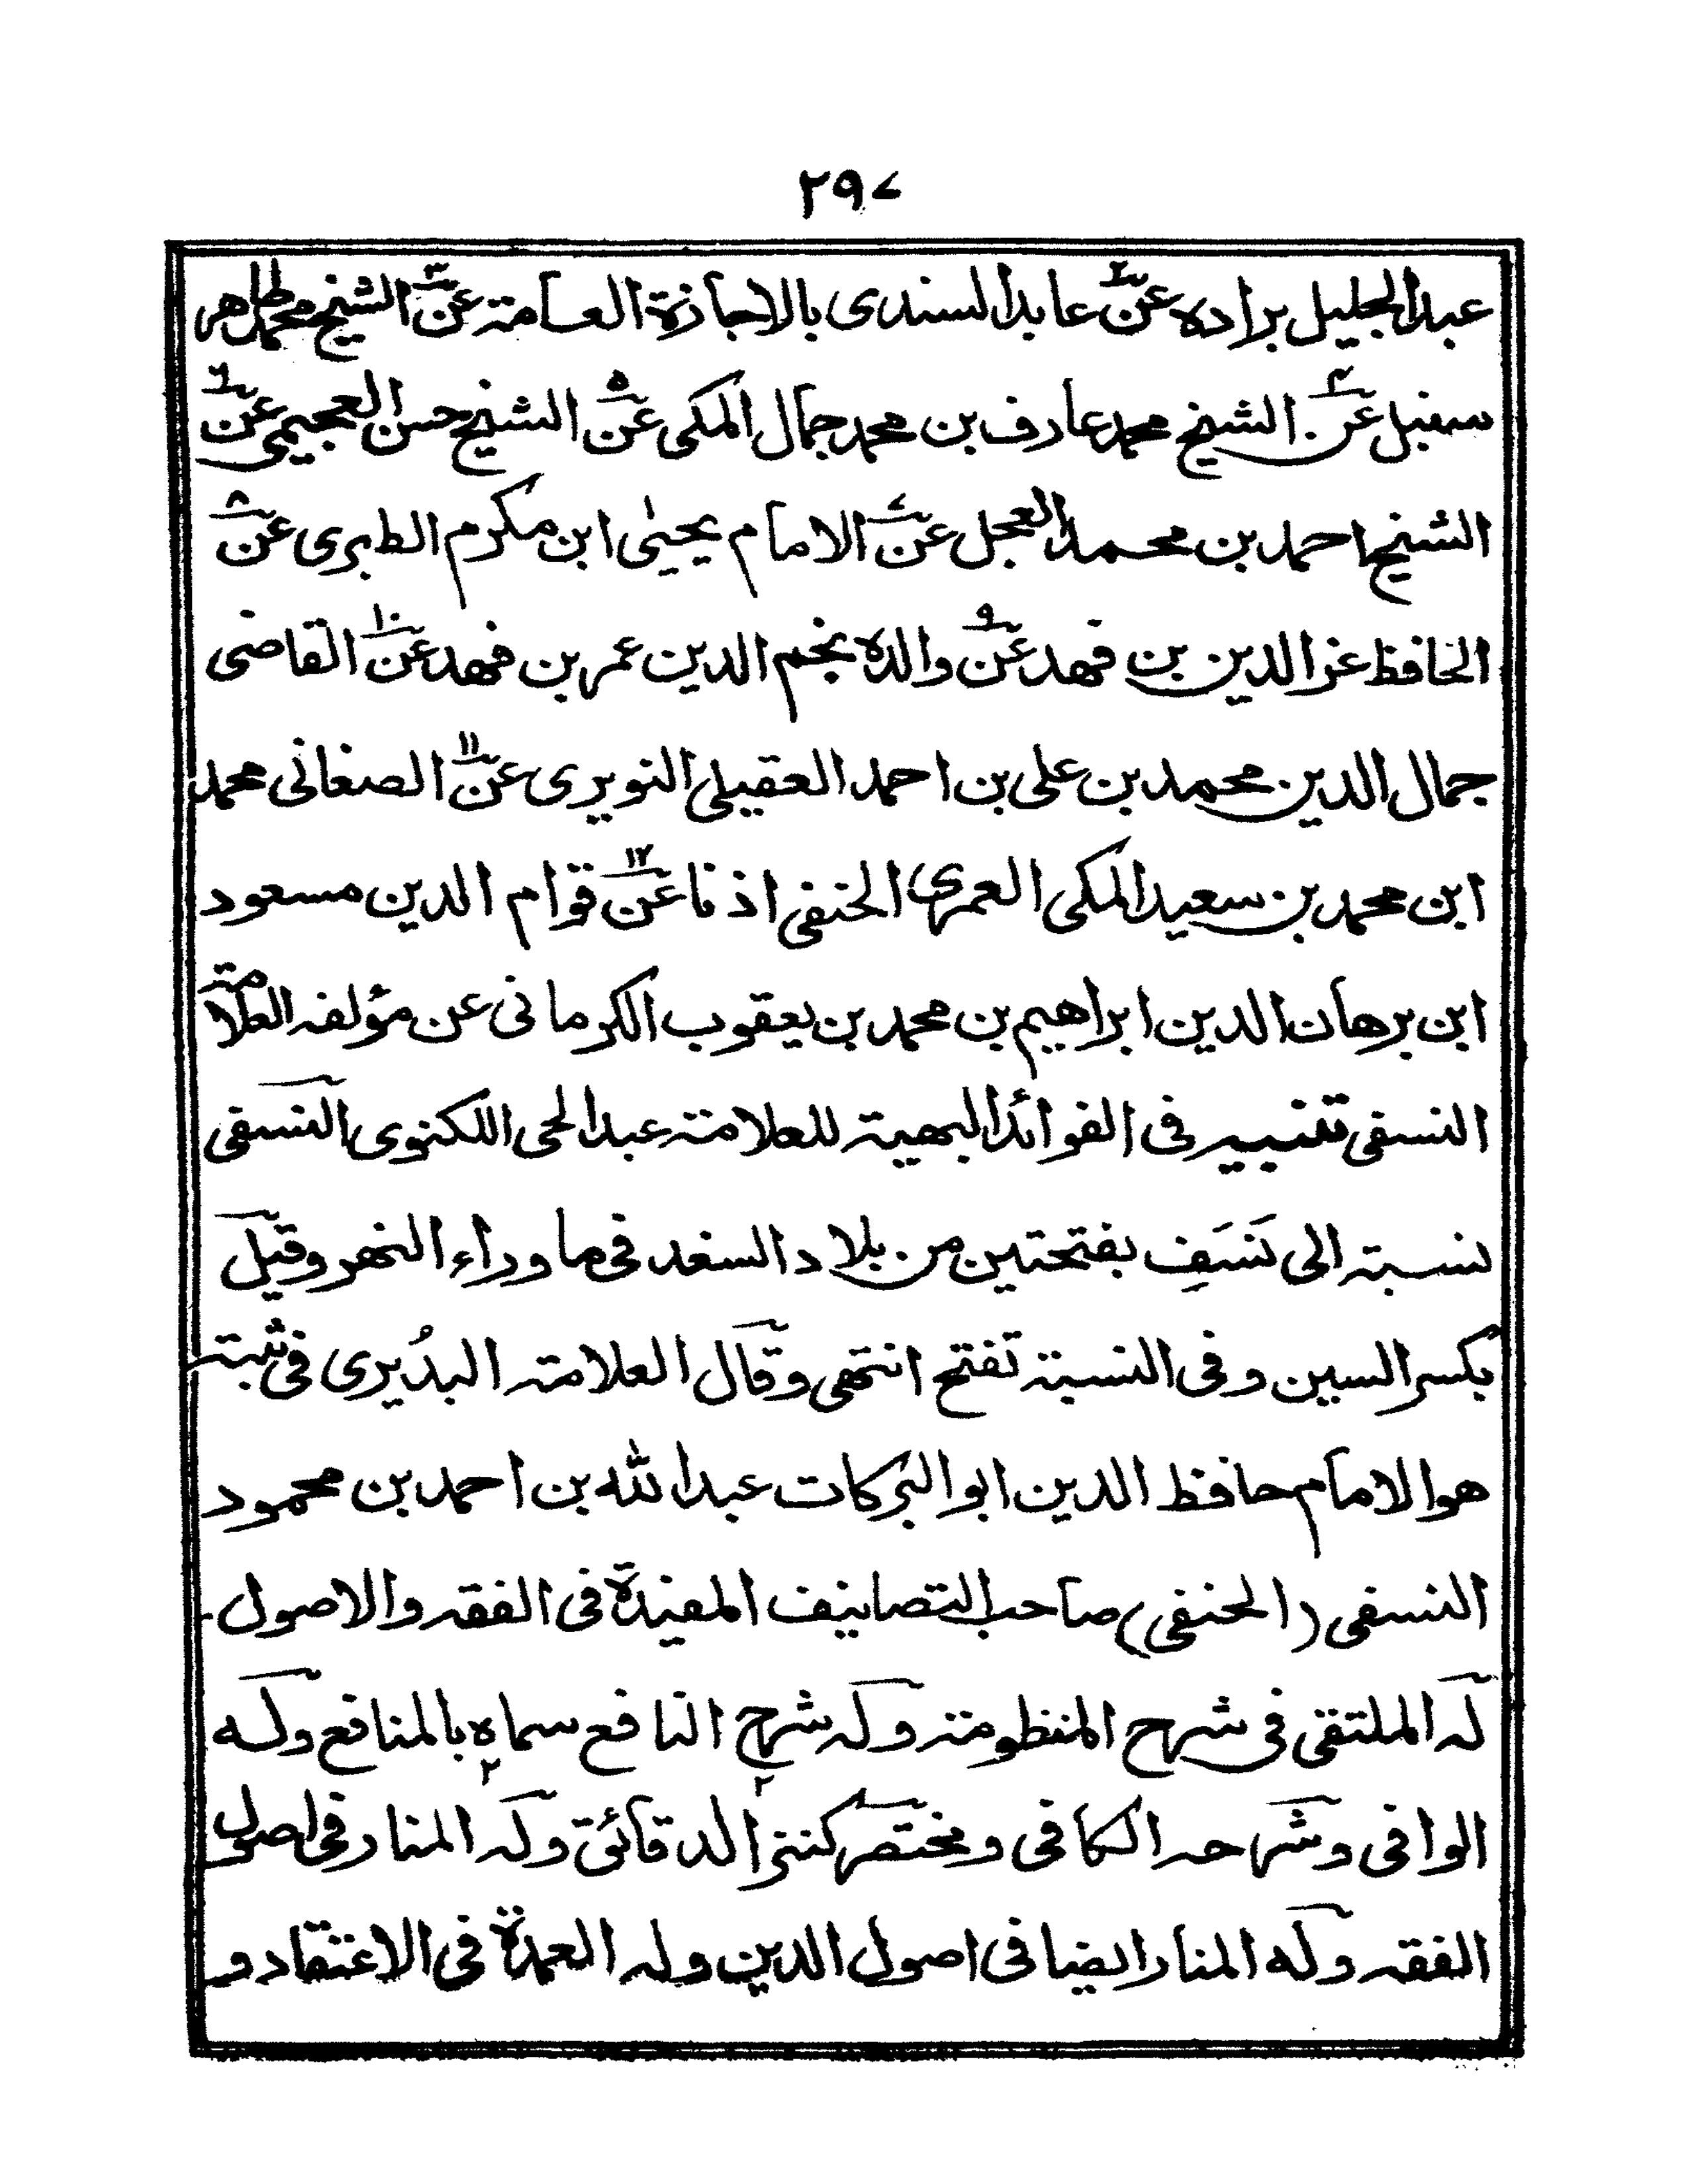 ۲۹۷
عبدالجليل براده عن٢ عابدالسندى بالاجازة العامة عن٣ الشيخ محمدطاهر
سنبل عن٤ الشيخ محمدعارف بن محمدجمال المكى عن٥ الشيخ حسن العجيمى عن٦
الشيخ احمد بن محمدالعجل عن٧ الامام يحيىٰ ابن مكرم الطبرى عن٨
الحافظ عزالدين بن فهد عن٩ والده نجم الدين عمر بن فهد عن١٠ القاضى
جمال الدين محمد بن على بن احمد العقيلى النويرى عن١١ الصغانى محمد
ابن محمد بن سعيدالمكى العمرى الحنفى اذنا عن١٢ قوام الدين مسعود
ابن برهان الدين ابراهيم بن محمد بن يعقوب الكرمانى عن مؤلفه العلامة
النسفى تنبيه فى الفوائدالبهية للعلامة عبدالحى اللكنوى النسفى
نسبة الى نَسَفِ بفتحتين من بلاد السغد فى ما وراء النهر وقيل
بكسر السين وفى النسبة تفتح انتهى وقال العلامة البدُيرى فى ثبته
هو الامام حافظ الدين ابو البركات عبدالله بن احمد بن محمود
النسفى (الحنفى) صاحب التصانيف المفيدة فى الفقه والاصول
له الملتقى فى شرح المنظومة وله شرح النافع سماه بالمنافع وله
الوافى وشرحه الكافى ومختصر كنز ٢ الدقائق وله ٢ المنار فى اصول
الفقه وله المنار ايضا فى اصول الدين وله العمدة فى الاعتقاد و